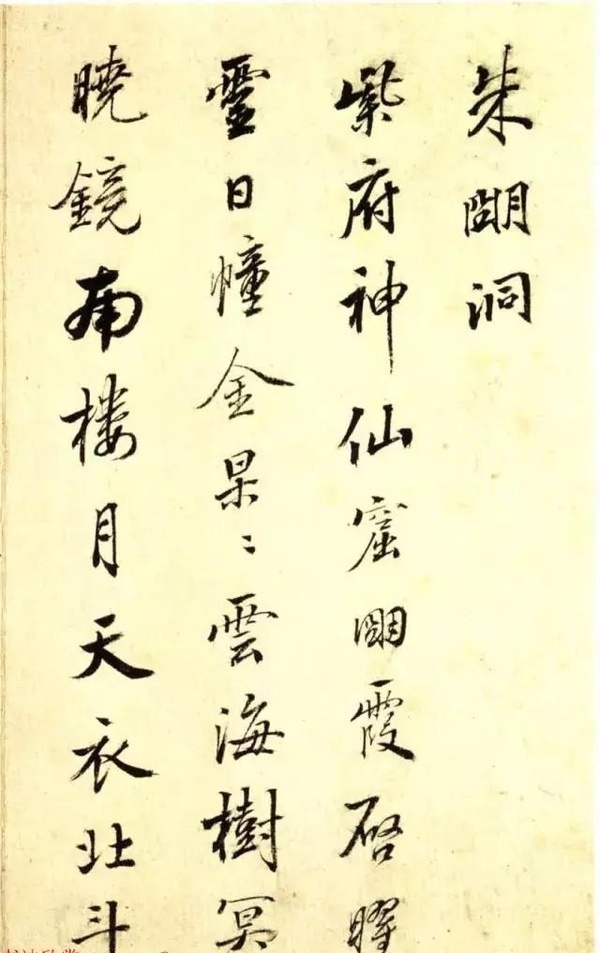 朱明洞
紫府神仙窟明霞啓曜
靈日幢金杲〻雲海樹冥
曉鏡南樓月天衣北斗